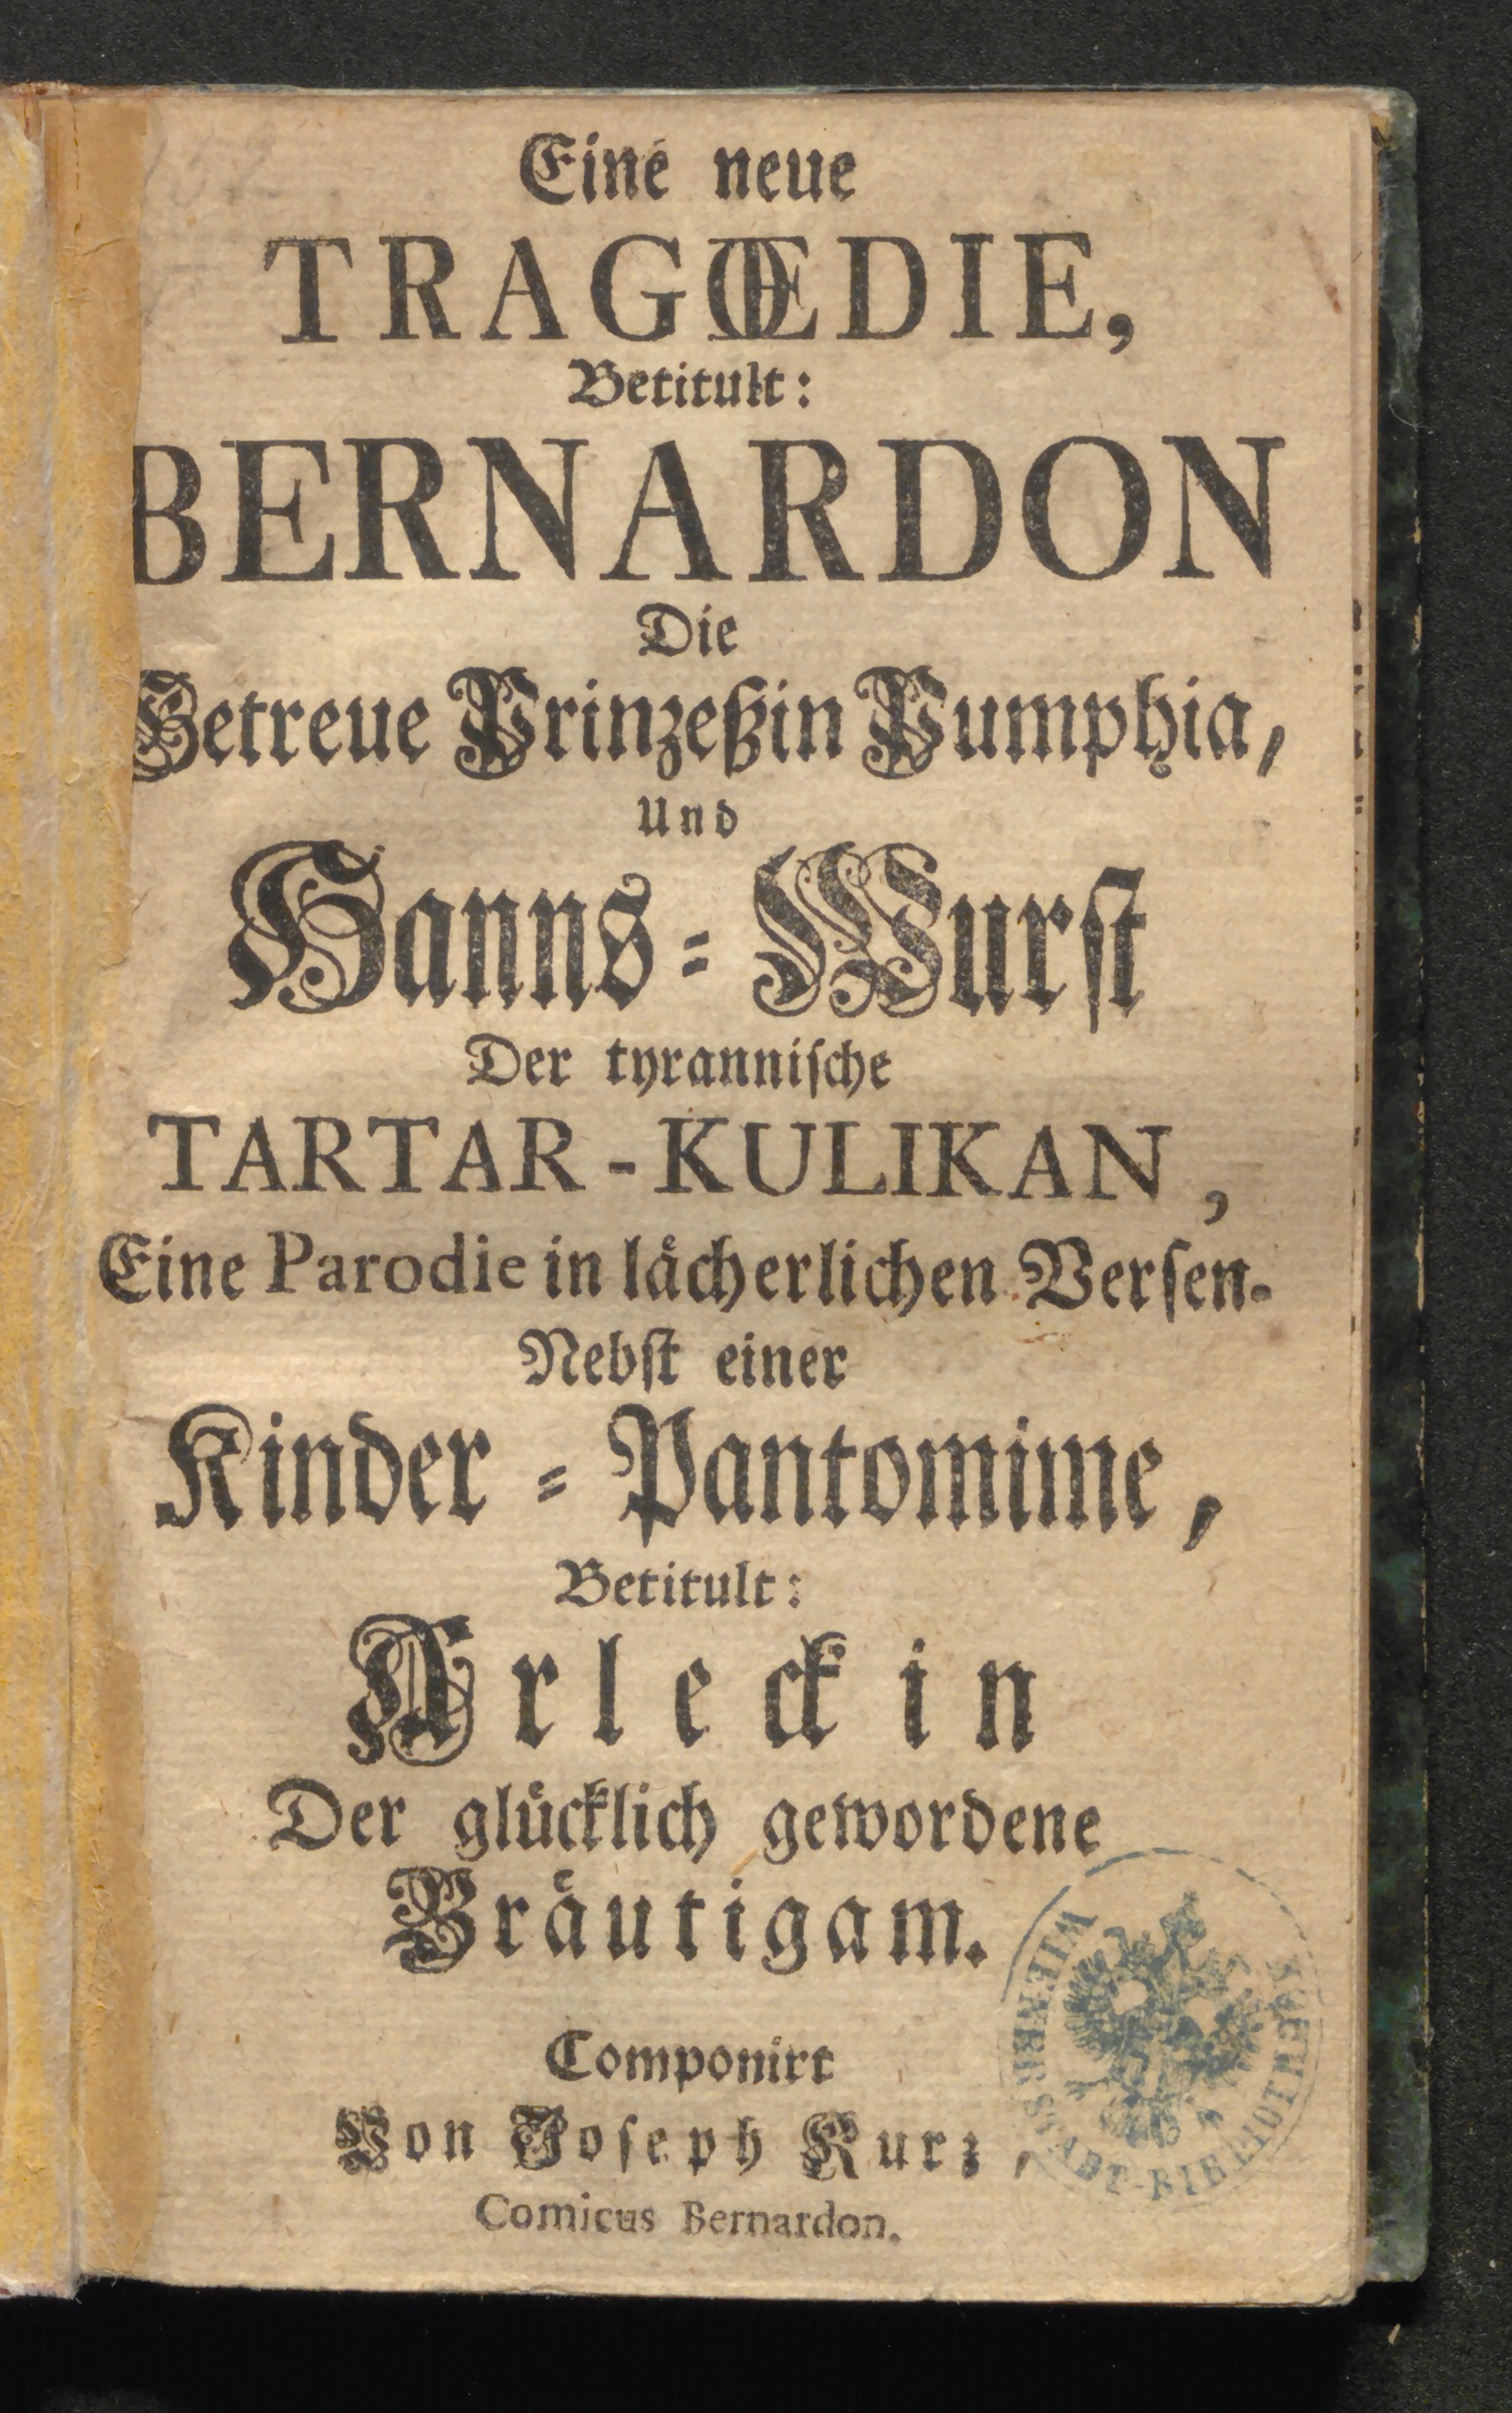 Eine neue
TRAGŒDIE,
Betitult:
BERNARDON
Die
Getreue Prinzeßin Pumphia,
Und
Hanns=Wurst
Der tyrannische
TARTAR-KULIKAN,
Eine Parodie in lächerlichen Versen.
Nebst einer
Kinder=Pantomime,
Betitult:
Arleckin
Der glücklich gewordene
Bräutigam.
Componirt
Von Joseph Kurz,
Comicus Bernardon.
WIENER STADT-BIBLIOTHEK